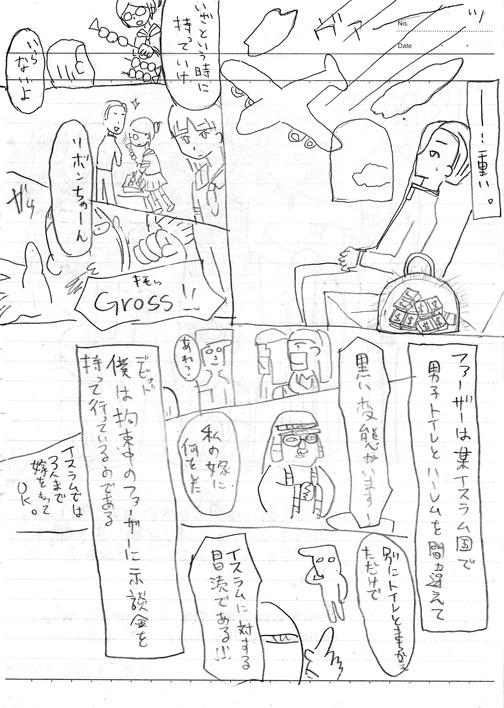 No.
Date
ヴァ
――重い。
いざという時に
持っていけ
いら
ないよ
リボンちゃーん
ガッ
キモい
Gross!!
ファーザーは某イスラム国で
男子トイレとハーレムを間違えて
黒い変態がいますー
あれ?
私の嫁に
何をした
別にトイレとまちがえ
ただけで
イスラムに対する
冒涜である!!
デビッド
僕は拘束中のファーザーに示談金を
持って行っているのである
イスラムでは
3人まで
嫁をもって
OK。